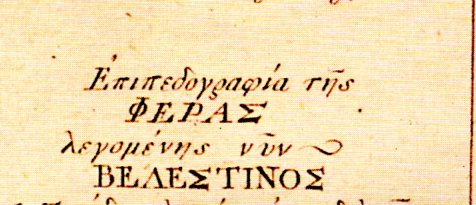 Ἐπιπεδογραφία τῆς
ΦΕΡΑΣ
λεγομένης νῦν
ΒΕΛΕΣΤΙΝΟΣ